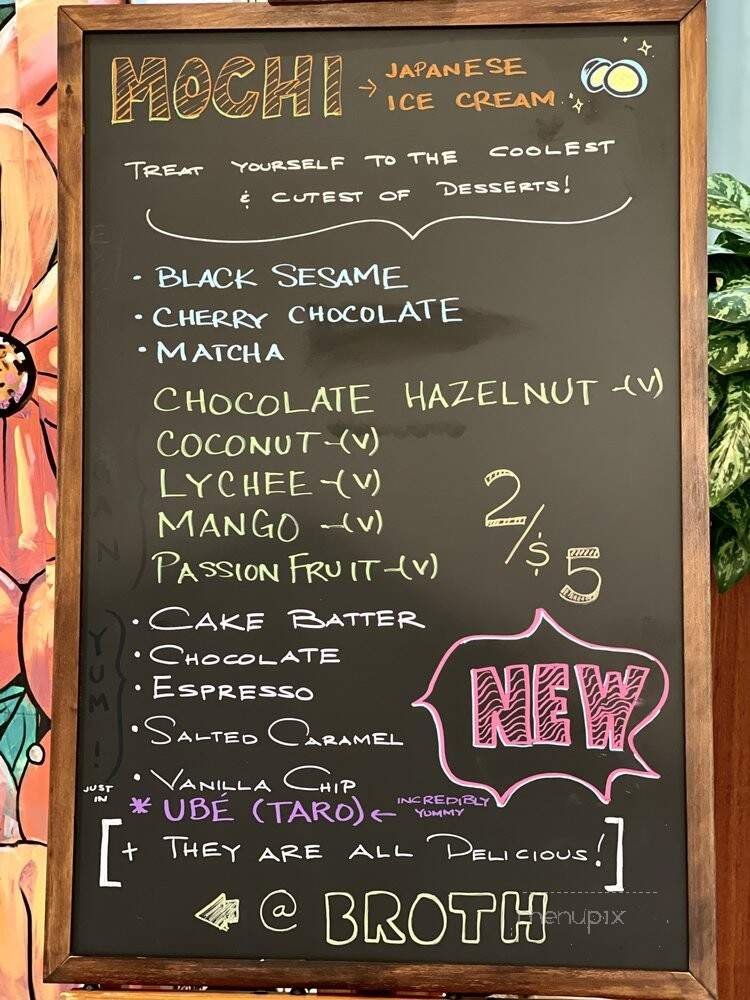 MOCHI → JAPANESE
ICE CREAM
TREAT YOURSELF TO THE COOLEST
& CUTEST OF DESSERTS!
• BLACK SESAME
• CHERRY CHOCOLATE
• MATCHA
CHOCOLATE HAZELNUT -(V)
COCONUT -(V)
LYCHEE -(V)
MANGO -(V)
PASSION FRUIT -(V)
2/$5
• CAKE BATTER
• CHOCOLATE
• ESPRESSO
• SALTED CARAMEL
• VANILLA CHIP
NEW
YUM!
JUST
IN
* UBÉ (TARO) ← INCREDIBLY
YUMMY
[+ THEY ARE ALL DELICIOUS!]
@ BROTH
menupix